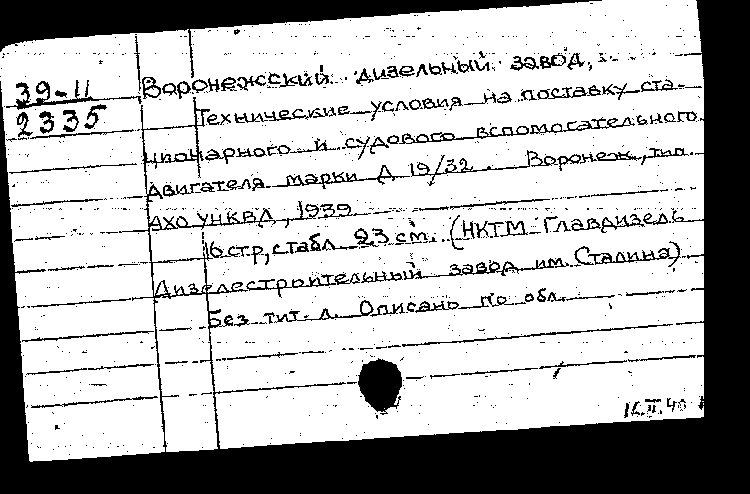 39-11
2335
Воронежский дизельный завод,
Технические условия на поставку ста-
ционарного и судового вспомогательного
двигателя марки Д 19/32. Воронеж, тип.
АХО УНКВД, 1939
16 стр, с табл. 23 см. (НКТМ Главдизель
Дизелестроительный завод им. Сталина)
Без тит. л. Описано по обл.
II.40